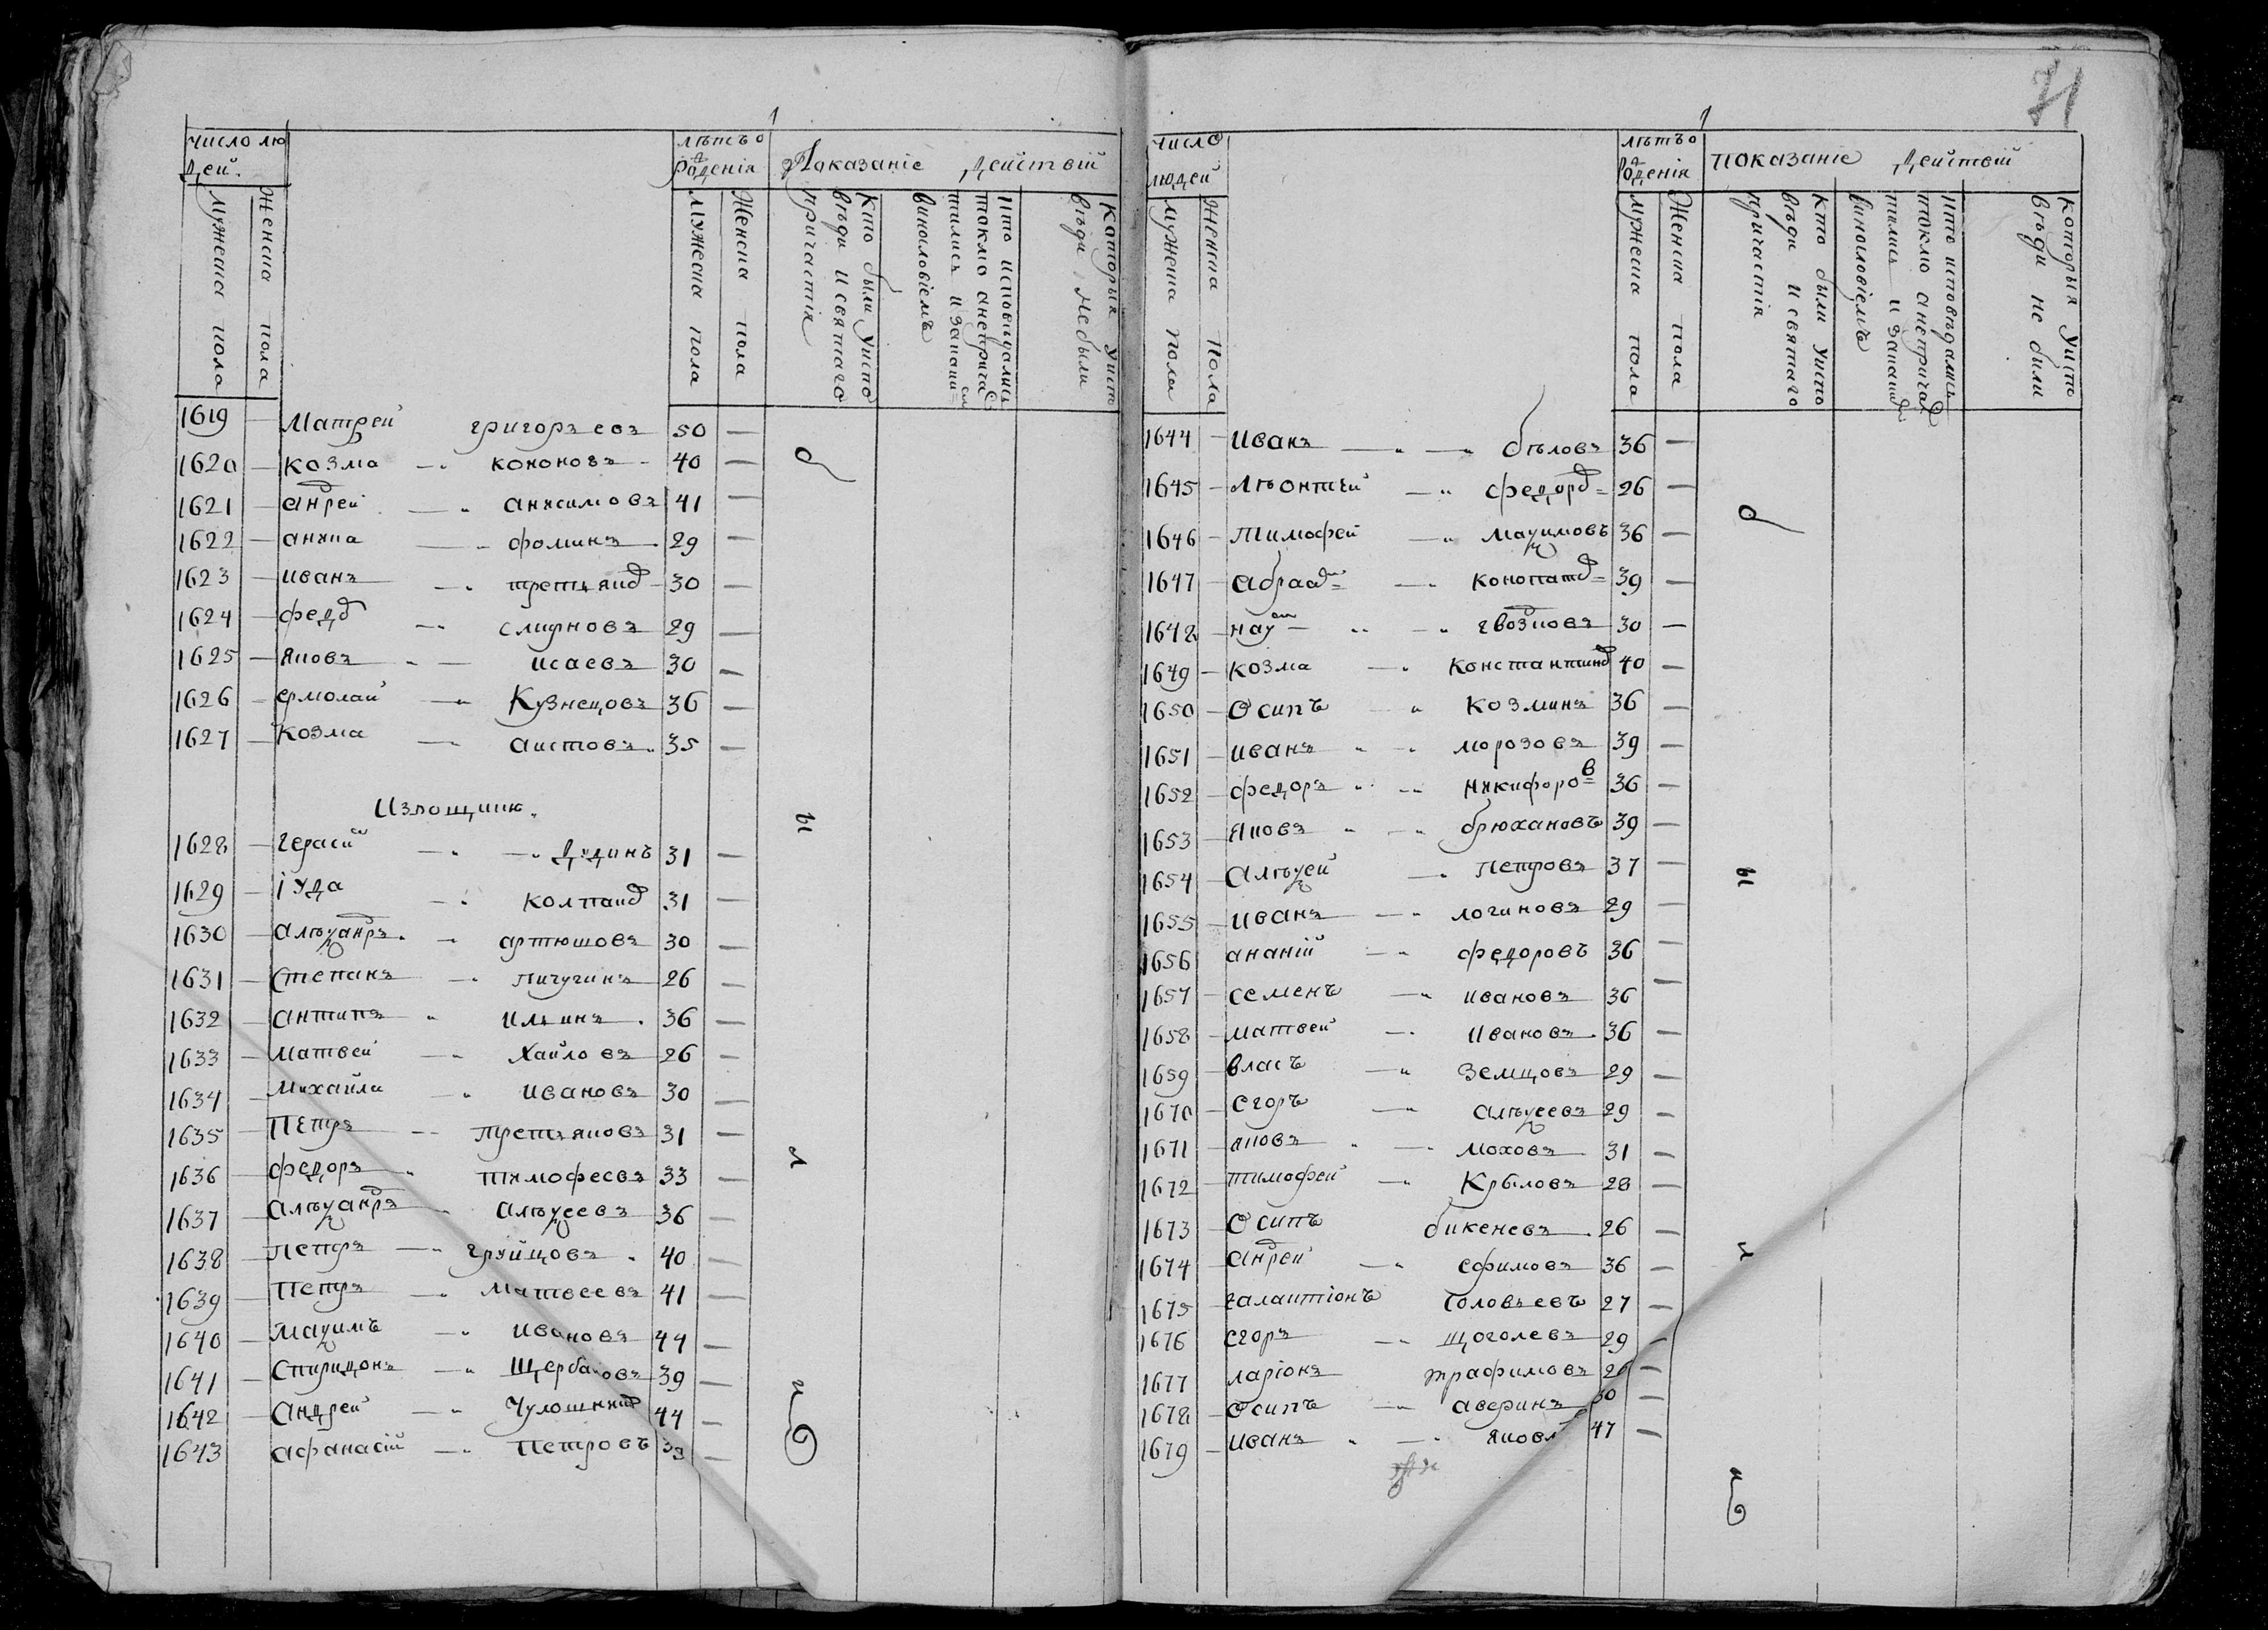 число лю
дей.
лѣтъ о
роденія
Показаніе действій
Мужеска пола
Женска пола
Мужеска пола
Женска пола
Кто были у испо
вѣди и святаго
причастія
Кто исповѣдались
токмо а не прича
винословіемъ
Которыя у испо
вѣди не были
1619 — Матвей григорьевъ 50 —
1620 — козма — кононовъ — 40 —
1621 — андрей — анисимовъ 41 —
1622 — аникиа — фоминъ 29 —
1623 — иванъ — третьяко 30 —
1624 — федо — смирновъ 29 —
1625 — яковъ — исаевъ 30 —
1626 — ермолаи — Кузнецовъ 36 —
1627 — козма — аистовъ 35 —
Извощики.
1628 — гераси — Дудинъ 31 —
1629 — іуда — колпако 31 —
1630 — алеѯандръ — артюшовъ 30 —
1631 — степанъ — пичугинъ 26 —
1632 — антипъ ильинъ 36 —
1633 — матвеи — хаиловъ 26 —
1634 — михаила — ивановъ 30 —
1635 — петръ — третьяковъ 31 —
1636 — федоръ тимофеевъ 33 —
1637 — алеѯандръ алеѯеевъ 36 —
1638 — петръ — 40 —
1639 — петръ — матвеевъ 41 —
1640 — маѯимъ — ивановъ 44 —
1641 — спиридонъ — щербаковъ 39 —
1642 — андрей — 44 —
1643 афанасіи — петровъ 39 —
были
71
число
людей
лѣтъ о
роденія
показаніе действій
мужеска пола
женска пола
мужеска пола
Женска пола
кто были у испо
вѣди и святаго
причастія
кто исповѣдались
токмо а не прича
винословіемъ
которыя у испо
вѣди не были
1644 — иванъ — бѣловъ 36 —
1645 — лѣонтеи — федоро 26 —
1646 — тимофеи — маѯимовъ 36 —
1647 — абраа — конопато 39 —
1648 — наум — гвоздовъ 30 —
1649 — козма — константино 40 —
1650 — осипъ козминъ 36 —
1651 — иванъ морозовъ 39 —
1652 — федоръ никифоров 36 —
1653 — яковъ — брюхановъ 39 —
1654 — алеѯеи — петровъ 37 —
1655 — иванъ — логиновъ 29 —
1656 ананіи — федоровъ 36 —
1657 — семенъ — ивановъ 36 —
1658 — матвеи — ивановъ 36 —
1659 — власъ — земцовъ 29 —
1670 — егоръ — алеѯеевъ 29 —
1671 — яковъ — моховъ 31 —
1672 — тимофеи — Крыловъ 28 —
1673 — осипъ бикеневъ 26 —
1674 — андреи — ефимовъ 36 —
1675 — галактіонъ соловьевъ 27 —
1676 егоръ — щоголевъ 29 —
1677 ларіонъ трафимовъ 26 —
1678 — осипъ — аверинъ 30 —
1679 — иванъ — яковл 47 —
были